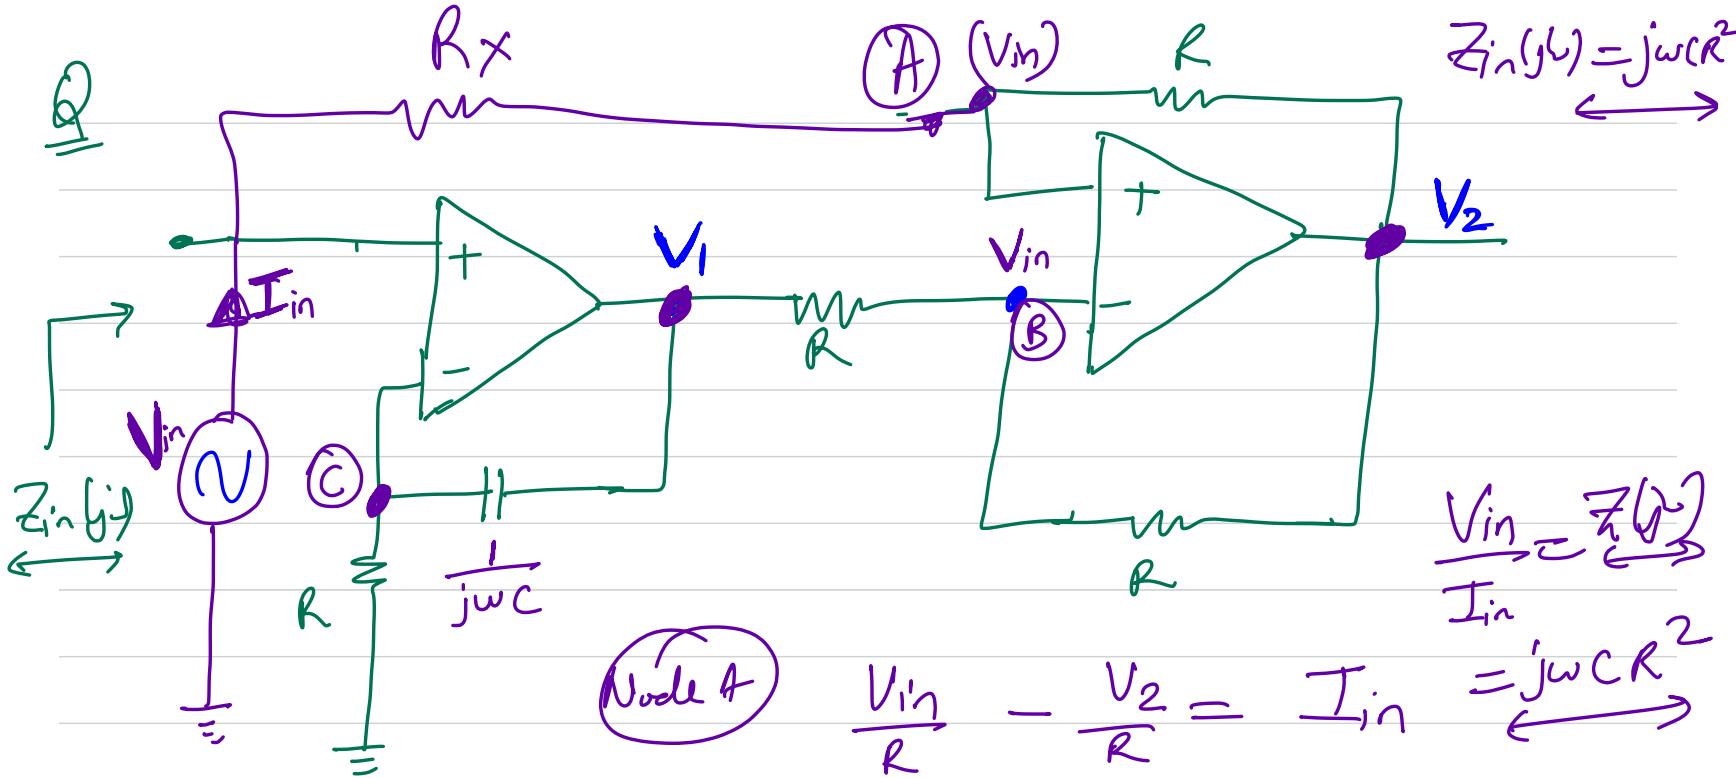 Q
Rx
A
(Vin)
R
Zin(jω) = jωCR²
+
V1
Vin
+
V2
Iin
−
R
B
−
Vin
C
Zin(jω)
R
1/jωC
R
Vin/Iin = Z(jω)
= jωCR²
Node A
Vin/R − V2/R = Iin